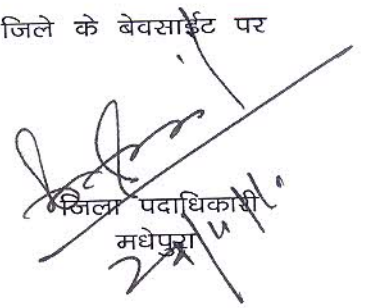 जिले के बेवसाईट पर
जिला पदाधिकारी
मधेपुरा